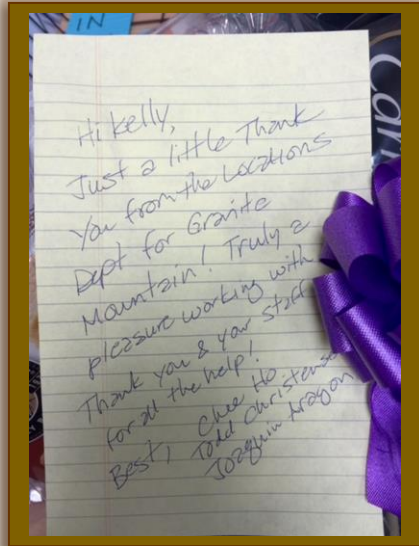 IN
Car
Hi Kelly,
Just a little Thank
You from the Locations
Dept for Granite
Mountain! Truly a
pleasure working with
Thank you & your staff
for all the help!
Best, Chee Ho
Todd Christensen
Joaquin Aragon